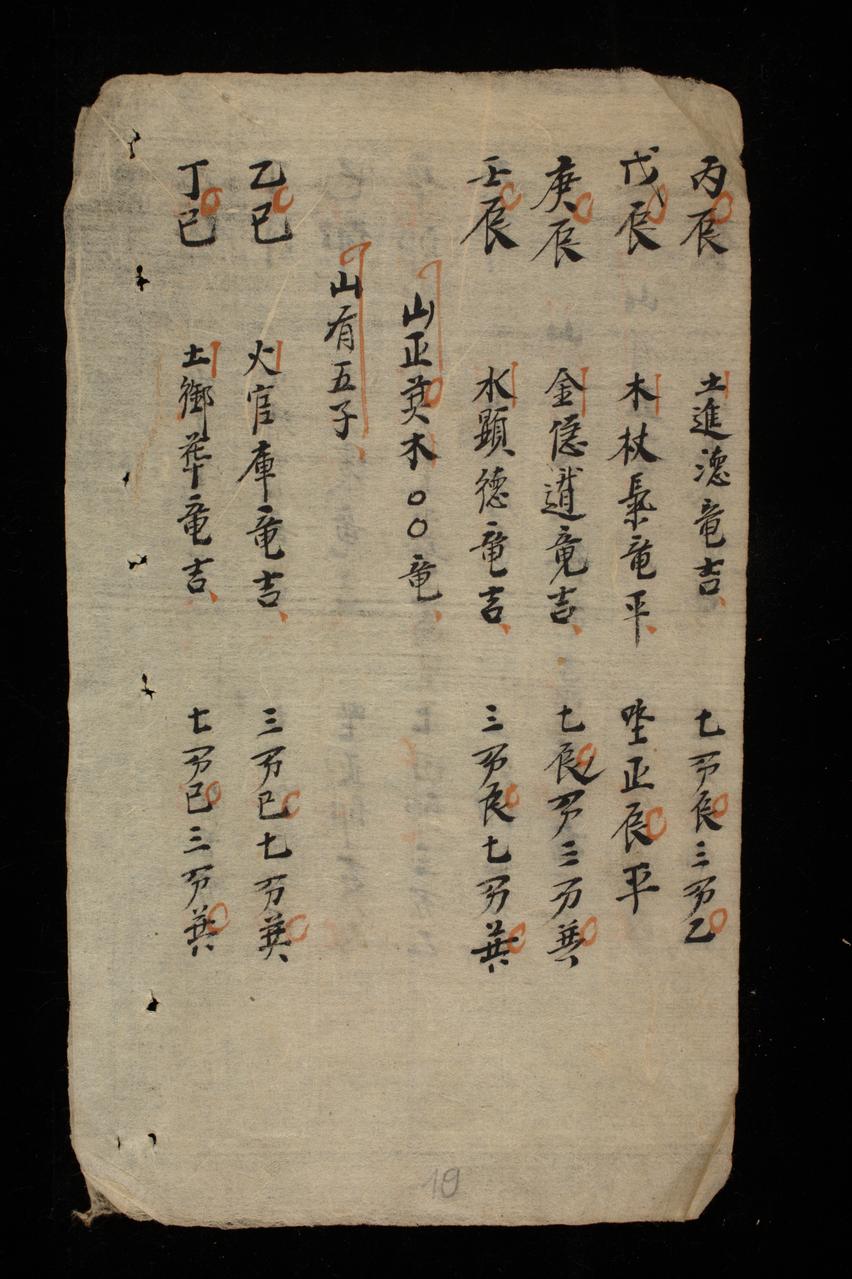 丙辰 土進德竜吉 七分辰三分乙
戊辰 木杖氣竜平 坐正辰平
庚辰 金隱道竜吉 七辰分三分巽
壬辰 水顕德竜吉 三分辰七分巽
山正巽木〇〇竜
山有五子
乙巳 火官庫竜吉 三分巳七分巽
丁巳 土御葬竜吉 七分巳三分巽
10